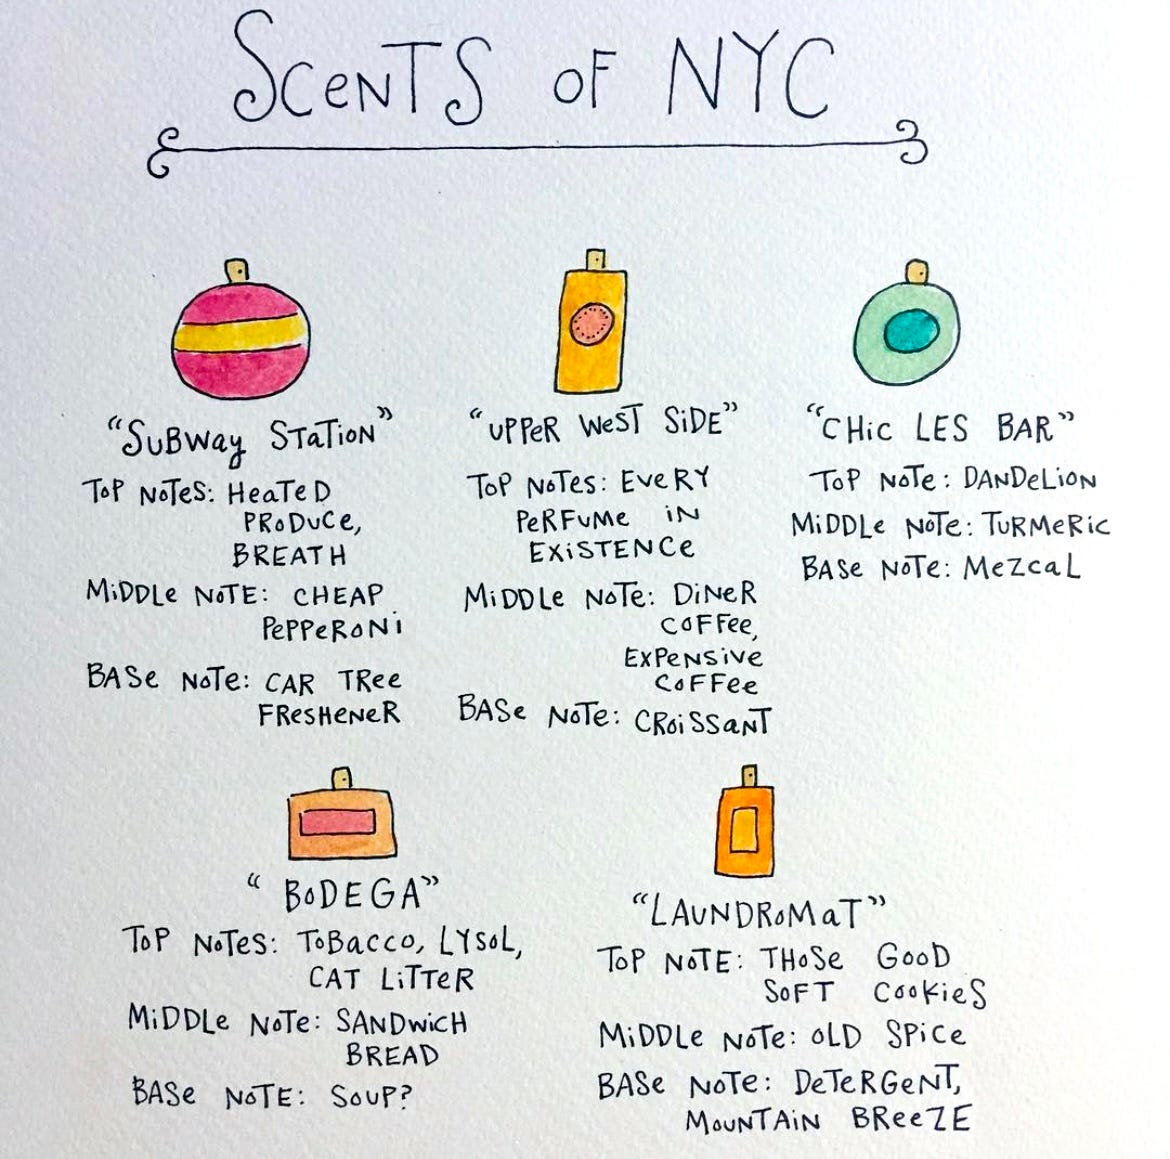 Scents of NYC
"Subway Station"
Top Notes: Heated
Produce,
Breath
Middle Note: Cheap
Pepperoni
Base Note: Car Tree
Freshener
"Upper West Side"
Top Notes: Every
Perfume in
Existence
Middle Note: Diner
Coffee,
Expensive
Coffee
Base Note: Croissant
"Chic LES Bar"
Top Note: Dandelion
Middle Note: Turmeric
Base Note: Mezcal
"Bodega"
Top Notes: Tobacco, Lysol,
Cat Litter
Middle Note: Sandwich
Bread
Base Note: Soup?
"Laundromat"
Top Note: Those Good
Soft Cookies
Middle Note: Old Spice
Base Note: Detergent,
Mountain Breeze